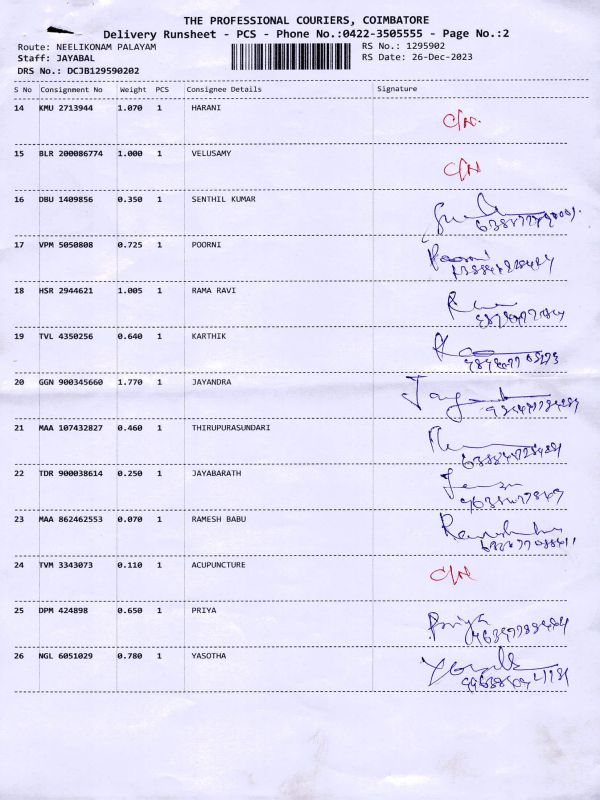 THE PROFESSIONAL COURIERS, COIMBATORE
Delivery Runsheet - PCS - Phone No.:0422-3505555 - Page No.:2
Route: NEELIKONAM PALAYAM
RS No.: 1295902
Staff: JAYABAL
RS Date: 26-Dec-2023
DRS No.: DCJB129590202
S No Consignment No Weight PCS Consignee Details Signature
14 KMU 2713944 1.070 1 HARANI
15 BLR 200086774 1.000 1 VELUSAMY
16 DBU 1409856 0.350 1 SENTHIL KUMAR
17 VPM 5050808 0.725 1 POORNI Poorni
18 HSR 2944621 1.005 1 RAMA RAVI
19 TVL 4350256 0.640 1 KARTHIK
20 GGN 900345660 1.770 1 JAYANDRA
21 MAA 107432827 0.460 1 THIRUPURASUNDARI
22 TDR 900038614 0.250 1 JAYABARATH
23 MAA 862462553 0.070 1 RAMESH BABU
24 TVM 3343073 0.110 1 ACUPUNCTURE
25 DPM 424898 0.650 1 PRIYA Priya
26 NGL 6051029 0.780 1 YASOTHA